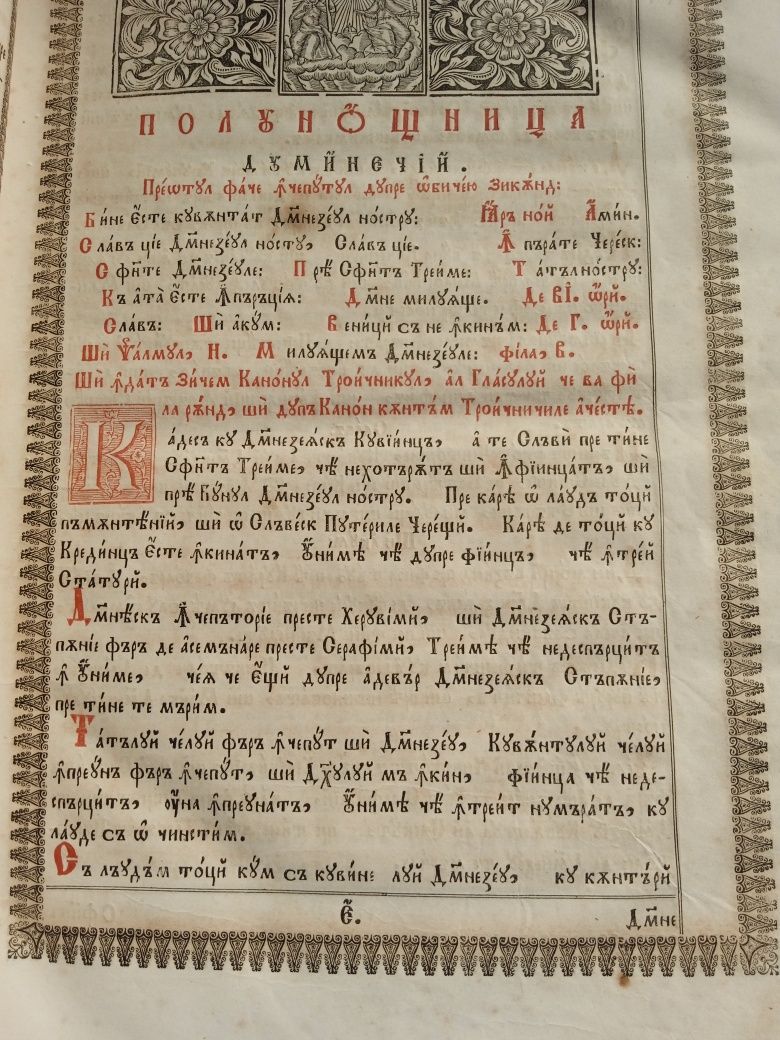 ПОЛꙊНѠЩНИЦА
ДꙊМИ́НЕЧІЙ.
Прео́тꙋл фа́че ꙟ҆чепꙋ́тꙋл дꙋпре ѡ҆бичею зикѫнд:
Би́не є҆́сте кꙋвѫнта́т Дм҃незе́ꙋл но́стрꙋ: Пръ но́й А҆ми́н.
Сла́въ ціе Дм҃незе́ꙋл но́стꙋ, Сла́въ ціе. Ꙟ҆пъра́те Чере́ск:
Сфи́нте Дм҃незе́ꙋле: Прѣ Сфи́нтъ Трeíме: Та́тъл но́стрꙋ:
Къ а҆та̀ є҆́сте Ꙟ҆пъръці́а: До́мне милꙋѧ́ще. Де ві҃. ѻ҆рй.
Сла́въ: Шѝ а҆кꙋ́м: Вени́ци съ не ꙟ҆кинъ́м: Де г҃. ѻ҆рй.
Шѝ Ѱалмꙋл, н҃. Милꙋѧ́ще́мъ Дм҃незе́ꙋле: фи́ла, в҃.
Шѝ ꙟ҆да́тъ зи́чем Кано́нꙋл Трои́чникꙋл, а҆л Гла́сꙋлꙋй че ва фѝ
ла рѫнд, шѝ дꙋпъ Кано́н кѫнтъ́м Трои́чничиле а҆че́сте.
Ка́десъ кꙋ Дм҃незеѧ́скъ Кꙋвіи́нцъ, а те Слъвѝ пре ти́не
Сфи́нтъ Трeíме, чѣ нехотъ́рѫтъ шѝ Ꙟ҆фіинца́тъ, шѝ
прѣ Бꙋ́нꙋл Дм҃незе́ꙋл но́стрꙋ. Пре ка́рѣ ѡ҆ ла́ꙋдъ то́ци
пъмѫнтѣ́нїй, шѝ ѡ҆ Слъве́ск Пꙋте́риле Чере́щй. Ка́рѣ де то́ци кꙋ
Креди́нцъ є҆́сте ꙟ҆кина́тъ, Оу҆ни́мѣ чѣ дꙋпре фїи́нцъ, чѣ ꙟ҆тре́й
Статꙋ́рй.
Дм҃нѣ́скъ Ꙟ҆чепъто́ріе пре́сте Херꙋві́мй, шѝ Дм҃незеѧ́скъ Стъ-
пѫні́е фъръ де а҆семъна́ре пре́сте Серафі́мй, Трeíмѣ чѣ недеспърци́тъ
ꙟ҆ Оу҆ни́ме, че́ѧ че є҆́щй дꙋпре а҆девъ́р Дм҃незеѧ́скъ Стъпѫні́е,
пре ти́не те мъри́м.
Та́тълꙋй че́лꙋй фъръ ꙟ҆чепꙋ́т шѝ Дм҃незе́ꙋ, Кꙋвѫ́нтꙋлꙋй че́лꙋй
ꙟ҆преꙋ́нъ фъръ ꙟ҆чепꙋ́т, шѝ Дх҃ꙋлꙋй мъ ꙟ҆ки́н, фїи́нца чѣ неде-
спърци́тъ, оу҆́на ꙟ҆преꙋна́тъ, Оу҆ни́мѣ чѣ ꙟ҆трeíт нꙋмъра́тъ, кꙋ
ла́ꙋде съ ѡ҆ чинсти́м.
Съ лъꙋдъ́м то́ци кꙋ́м съ кꙋви́не лꙋй Дм҃незе́ꙋ, кꙋ кѫнтъ́рй
є҃. Дм҃не